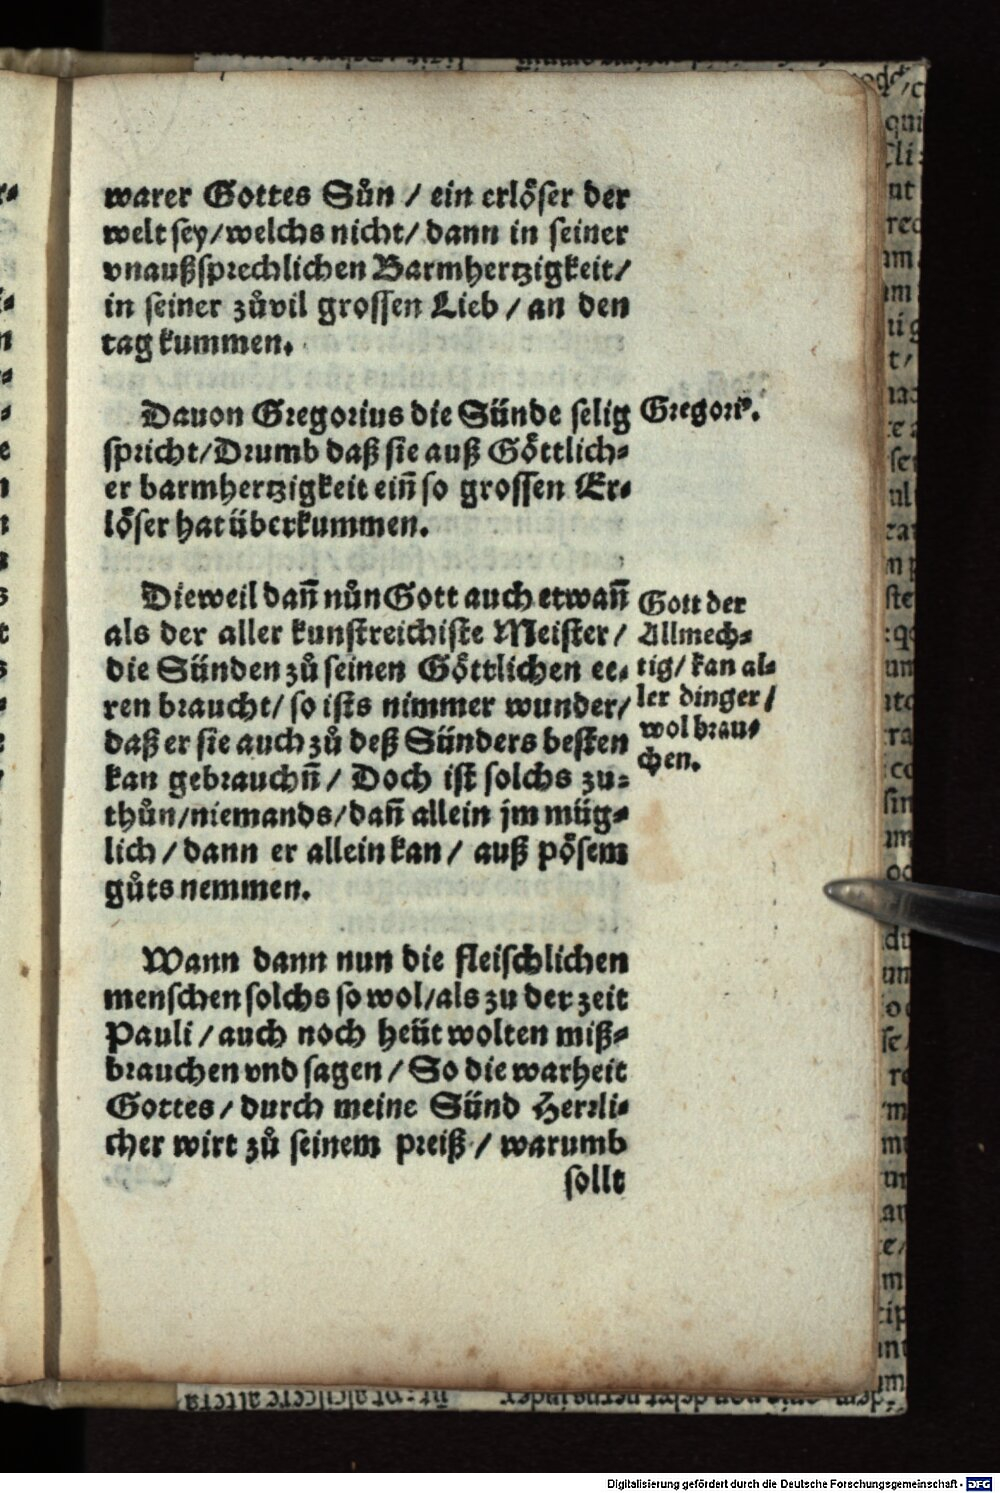 warer Gottes Sůn / ein erlöser der
welt sey/welchs nicht/ dann in seiner
vnaußsprechlichen Barmhertzigkeit/
in seiner zůvil grossen Lieb / an den
tag kummen.
Dauon Gregorius die Sünde selig
Gregori⁹.
spricht/Drumb daß sie auß Göttlich-
er barmhertzigkeit eiñ so grossen Er-
löser hat überkummen.
Dieweil dañ nůn Gott auch etwañ
als der aller kunstreichiste Meister/
die Sünden zů seinen Göttlichen ee-
ren braucht/ so ists nimmer wunder/
daß er sie auch zů deß Sünders besten
kan gebrauchñ/ Doch ist solchs zu-
thůn/niemands/dañ allein jm müg-
lich/ dann er allein kan/ auß pösem
gůts nemmen.
Gott der
Allmech-
tig/ kan al-
ler dinger/
wol brau-
chen.
Wann dann nun die fleischlichen
menschen solchs so wol/als zu der zeit
Pauli / auch noch heüt wolten miß-
brauchen vnd sagen/ So die warheit
Gottes/ durch meine Sünd Herrli-
cher wirt zů seinem preiß / warumb
sollt
Digitalisierung gefördert durch die Deutsche Forschungsgemeinschaft - DFG